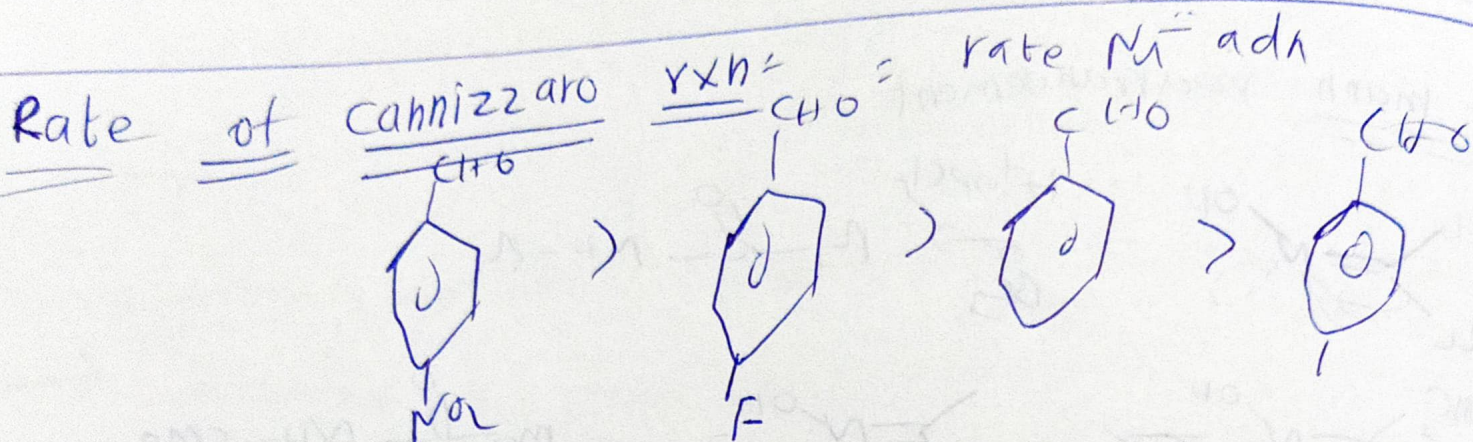 Rate of Cannizzaro rxn = = rate Nu⁻ adn
CHO CHO CHO CHO
> > >
NO2 F